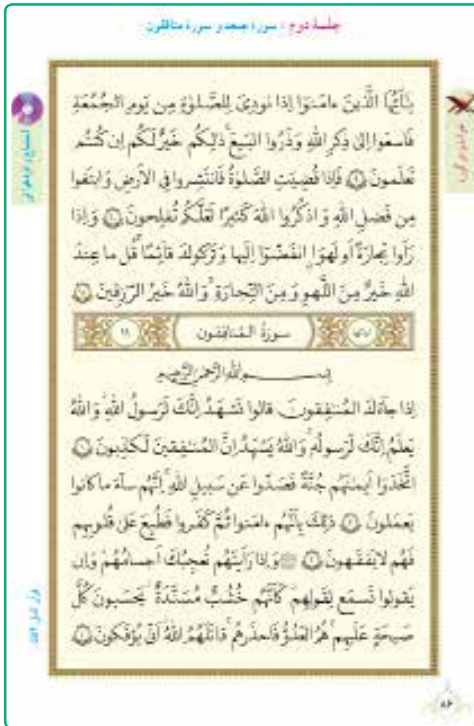 جلسهٔ دوم : سورهٔ جمعه و سورهٔ منافقون
يٰأَيُّهَا الَّذينَ ءامَنوا إِذا نودِيَ لِلصَّلوٰةِ مِن يَومِ الجُمُعَةِ
فَاسعَوا إِلىٰ ذِكرِ اللَّهِ وَذَرُوا البَيعَ ذٰلِكُم خَيرٌ لَكُم إِن كُنتُم
تَعلَمونَ ٩ فَإِذا قُضِيَتِ الصَّلوٰةُ فَانتَشِروا فِي الأَرضِ وَابتَغوا
مِن فَضلِ اللَّهِ وَاذكُرُوا اللَّهَ كَثيرًا لَعَلَّكُم تُفلِحونَ ١٠ وَإِذا
رَأَوا تِجارَةً أَو لَهوًا انفَضّوا إِلَيها وَتَرَكوكَ قائِمًا قُل ما عِندَ
اللَّهِ خَيرٌ مِنَ اللَّهوِ وَمِنَ التِّجارَةِ وَاللَّهُ خَيرُ الرّٰزِقينَ ١١
سورةُ المُنافِقون ١١
بِسمِ اللَّهِ الرَّحمٰنِ الرَّحيمِ
إِذا جاءَكَ المُنٰفِقونَ قالوا نَشهَدُ إِنَّكَ لَرَسولُ اللَّهِ وَاللَّهُ
يَعلَمُ إِنَّكَ لَرَسولُهُ وَاللَّهُ يَشهَدُ إِنَّ المُنٰفِقينَ لَكٰذِبونَ ١
اتَّخَذوا أَيمٰنَهُم جُنَّةً فَصَدّوا عَن سَبيلِ اللَّهِ إِنَّهُم ساءَ ما كانوا
يَعمَلونَ ٢ ذٰلِكَ بِأَنَّهُم ءامَنوا ثُمَّ كَفَروا فَطُبِعَ عَلىٰ قُلوبِهِم
فَهُم لا يَفقَهونَ ٣ وَإِذا رَأَيتَهُم تُعجِبُكَ أَجسامُهُم وَإِن
يَقولوا تَسمَع لِقَولِهِم كَأَنَّهُم خُشُبٌ مُسَنَّدَةٌ يَحسَبونَ كُلَّ
صَيحَةٍ عَلَيهِم هُمُ العَدُوُّ فَاحذَرهُم قاتَلَهُمُ اللَّهُ أَنّىٰ يُؤفَكونَ ٤
٨٦